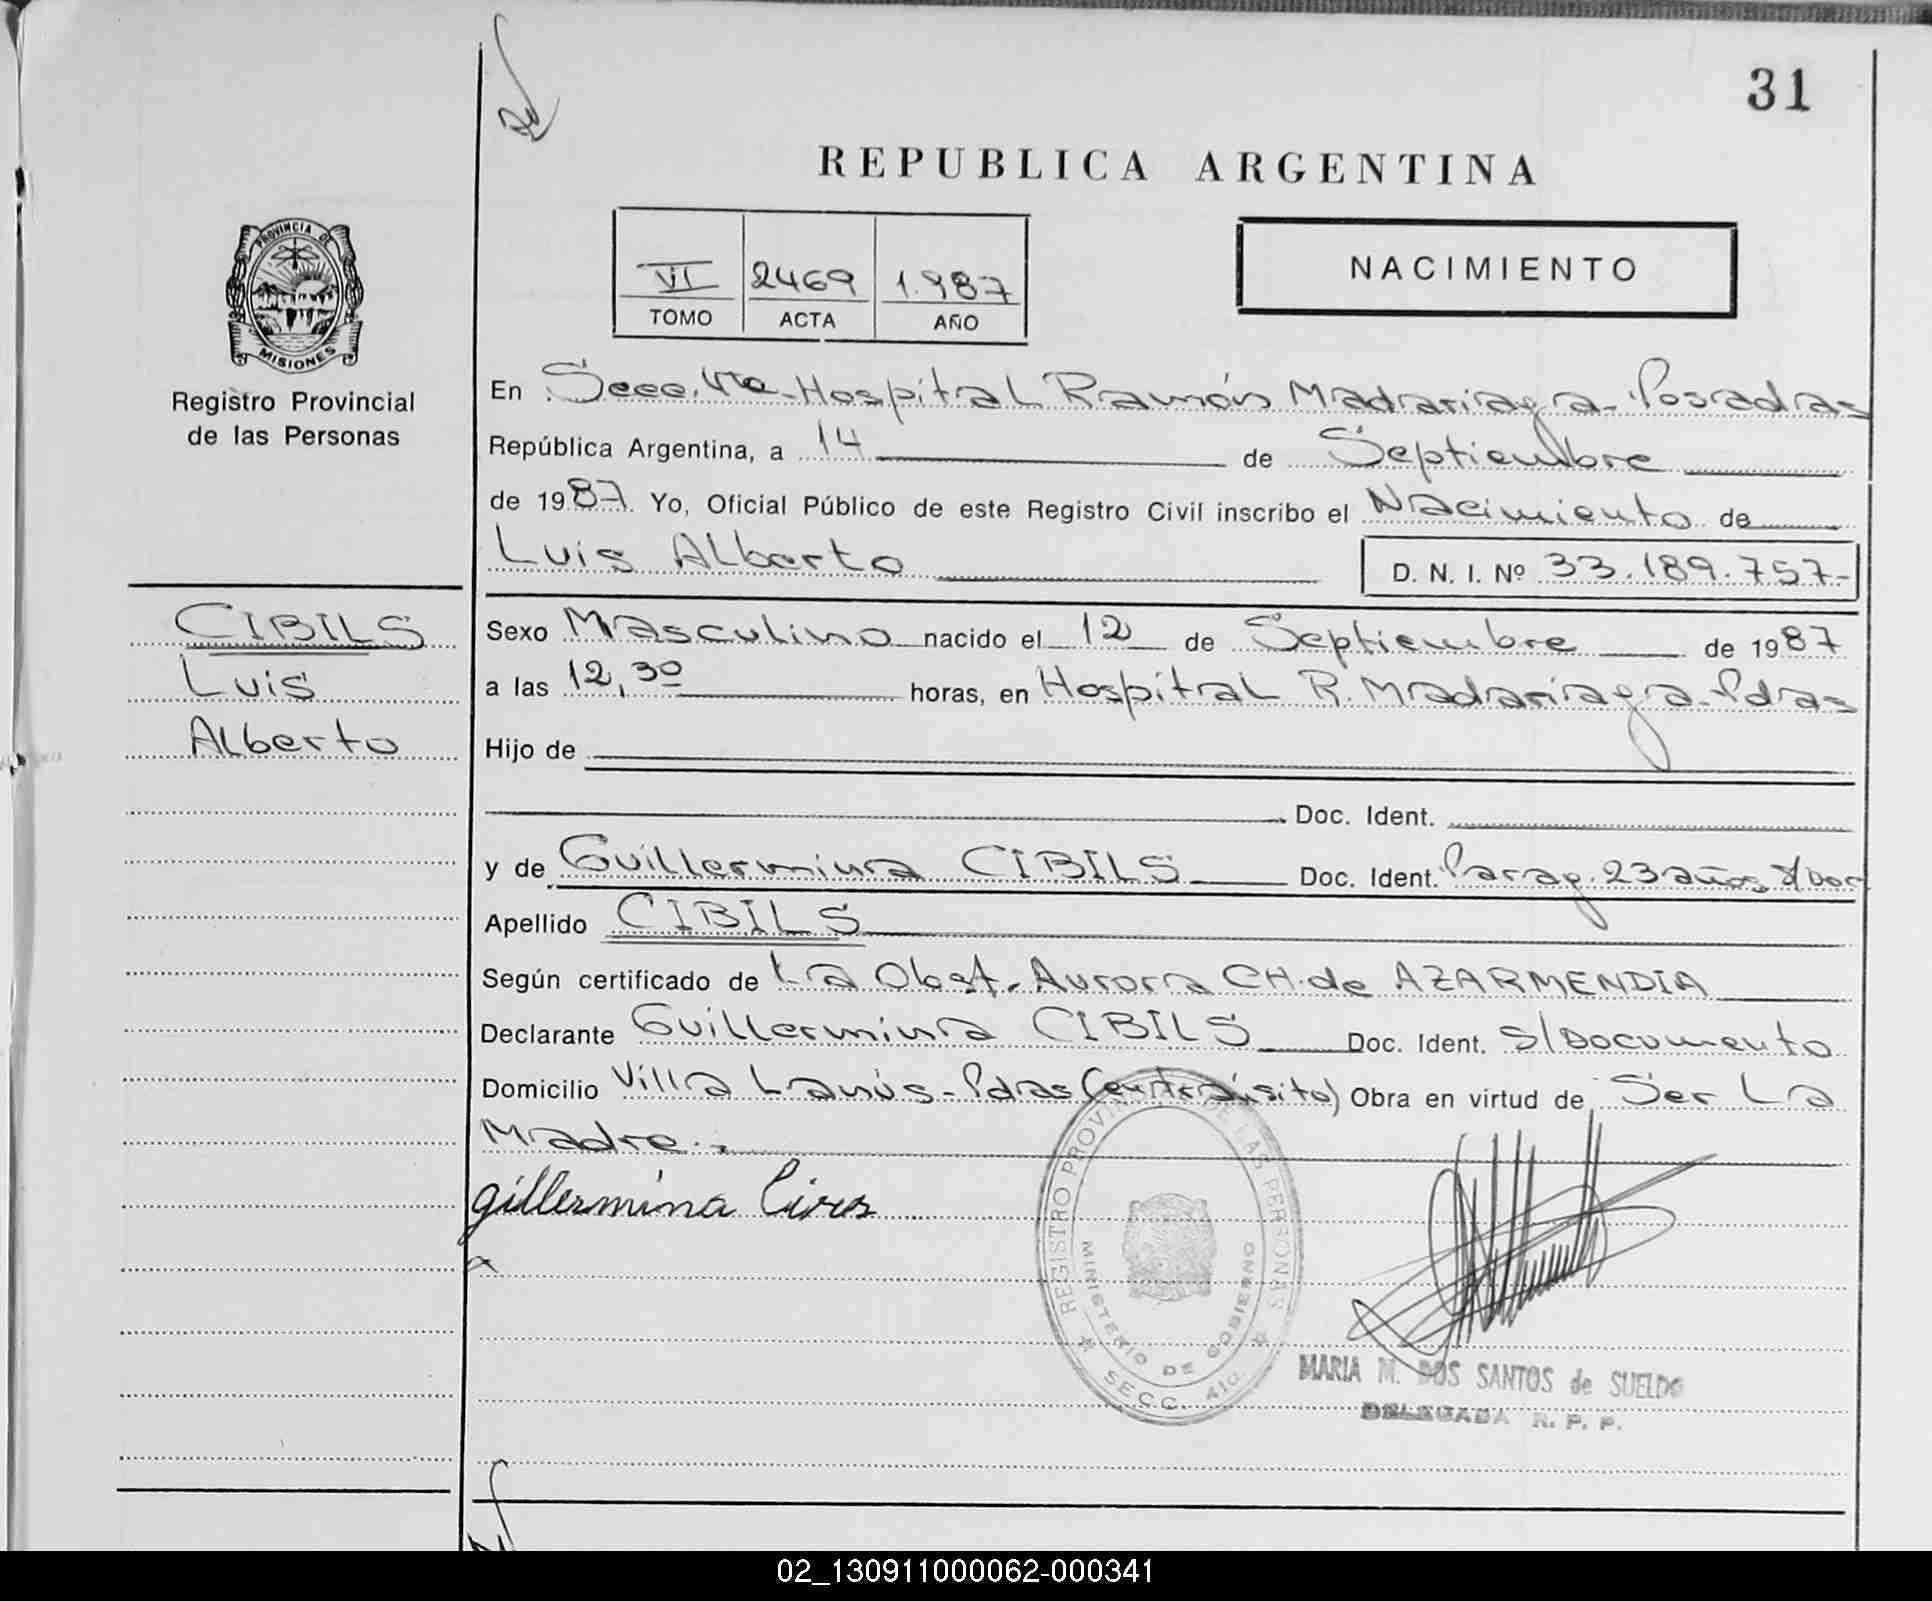 31
REPUBLICA ARGENTINA
PROVINCIA DE
MISIONES
Registro Provincial
de las Personas
VI 2469 1.987
TOMO ACTA AÑO
NACIMIENTO
En Secc. 4ta. Hospital Ramón Madariaga - Posadas
República Argentina, a 14 de Septiembre
de 1987. Yo, Oficial Público de este Registro Civil inscribo el Nacimiento de
Luis Alberto D. N. I. Nº 33.189.757-
CIBILS
Luis
Alberto
Sexo Masculino nacido el 12 de Septiembre de 1987
a las 12,30 horas, en Hospital R. Madariaga - Pdas
Hijo de
Doc. Ident.
y de Guillermina CIBILS Doc. Ident. Parag. 23 años s/Doc
Apellido CIBILS
Según certificado de La Obst. Aurora CH. de AZARMENDIA
Declarante Guillermina CIBILS Doc. Ident. S/Documento
Domicilio Villa Lanús - Pdas (en tránsito) Obra en virtud de Ser La
Madre.
gillermina
REGISTRO PROVINCIAL DE LAS PERSONAS
MINISTERIO DE GOBIERNO
SECC. 4ta.
MARIA M. DOS SANTOS de SUELDO
DELEGADA R. P. P.
02_130911000062-000341